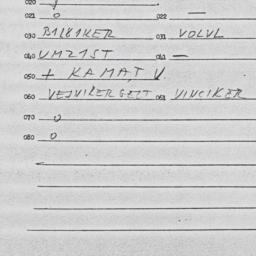 020
021 0 022 —
030 BILBIKER 031 VOLVL
040 UMZIST 041 —
050 + KAMAT V.
060 VEJVIKERGEIT 061 VINCIKER
070 0
080 0